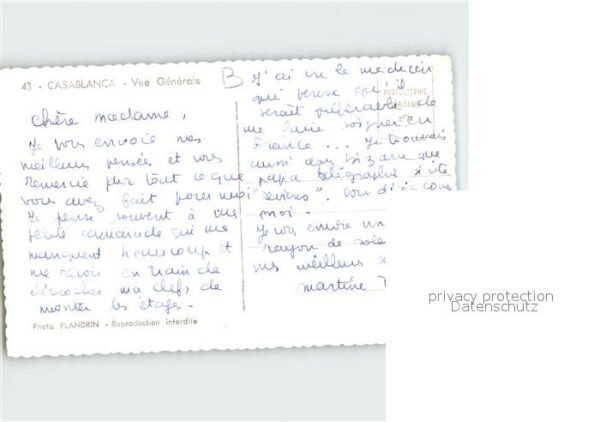 43 - CASABLANCA - Vue Générale
B
Chère madame,
Je vous envoie mes
meilleurs pensées et vous
remercie pour tout ce que
vous avez fait pour moi
Je pense souvent à mes
petite camarade qui me
manquent beaucoup et
me revois en train de
décrocher ma clef, de
monter les étages.
Photo FLANDRIN - Reproduction interdite
J'ai vu le medecin
qui pense qu'il
serait préférable de
me faire soigner en
France ... Je trouvais
aussi bizarre que
papa télégraphie si vite
moi.
Je vous envoie un
rayon de
mes meilleurs
martine
PHOTOGRAPHIE
privacy protection
Datenschutz